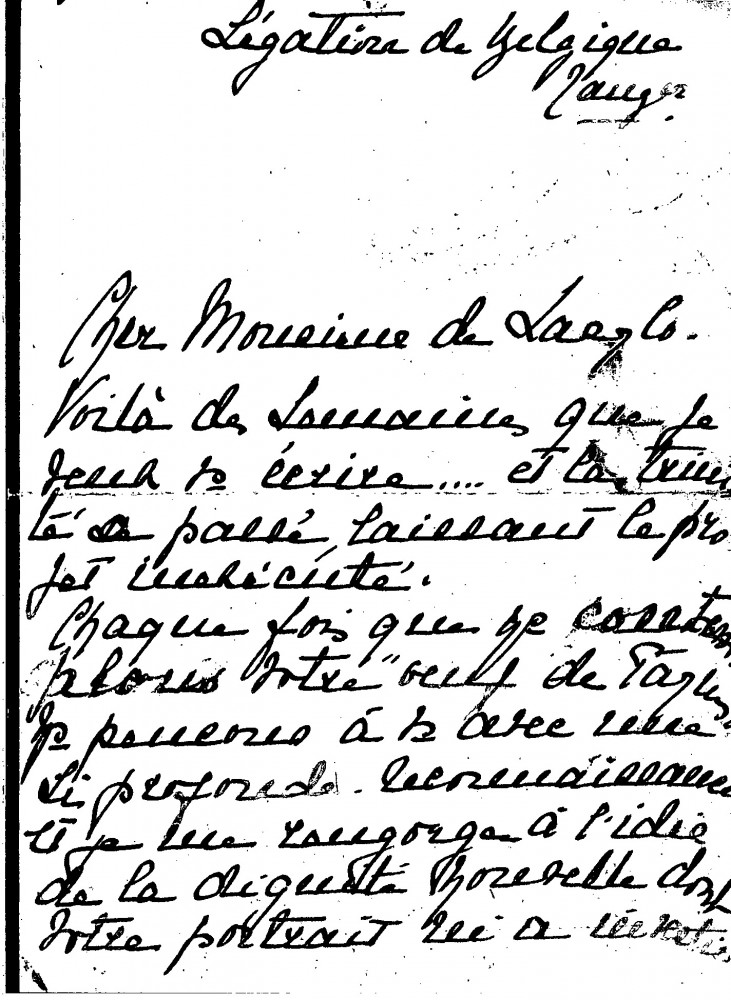 Légation de Belgique
Tanger
Cher Monsieur de Laszlo.
Voilà des semaines que je
veux vs écrire.... et la
té se passe, laissant le pro
jet inexécuté.
Chaque fois que je contem
plons votre oeuf de Pâques
je pensons à vs avec une
si profonde reconnaissance
et je me rengorge à l'idée
de la dignité nouvelle dont
votre portrait m'a investie